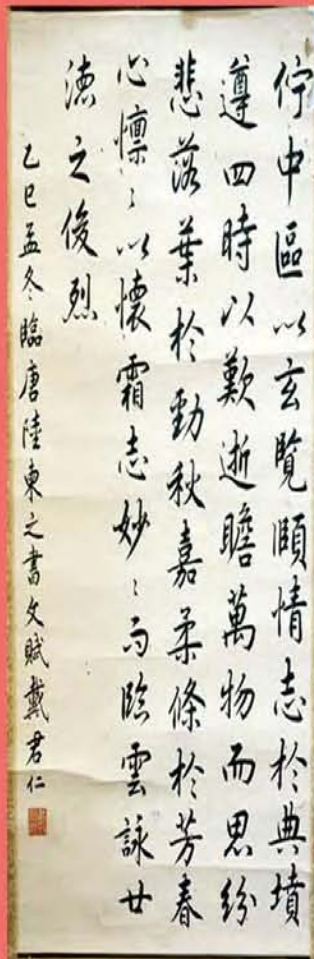 佇中區以玄覽頤情志於典墳
遵四時以歎逝瞻萬物而思紛
悲落葉於勁秋嘉柔條於芳春
心懍〻以懷霜志妙〻而臨雲詠廿
德之俊烈
乙巳孟冬臨唐陸柬之書文賦戴君仁